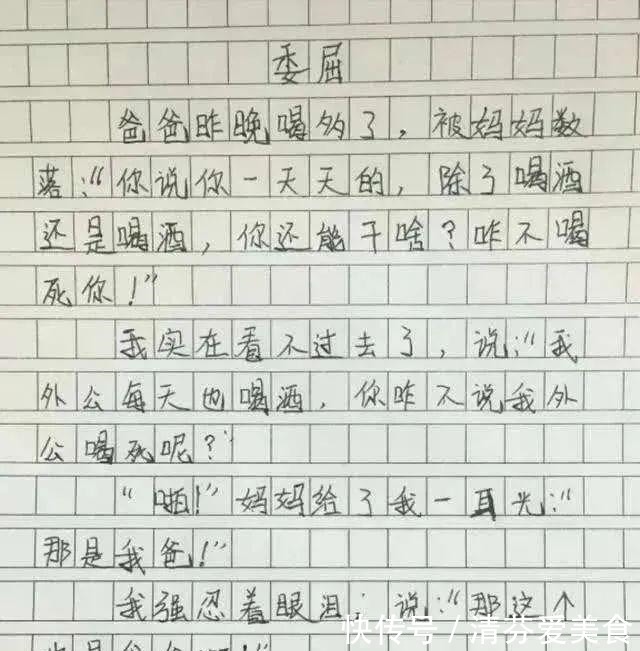 委屈
爸爸昨晚喝多了，被妈妈数
落：“你说你一天天的，除了喝酒
还是喝酒，你还能干啥？咋不喝
死你！”
我实在看不过去了，说：“我
外公每天也喝酒，你咋不说我外
公喝死呢？”
“啪！”妈妈给了我一耳光：“
那是我爸！”
我强忍着眼泪；说：“那这个
快传号／清芬爱美食